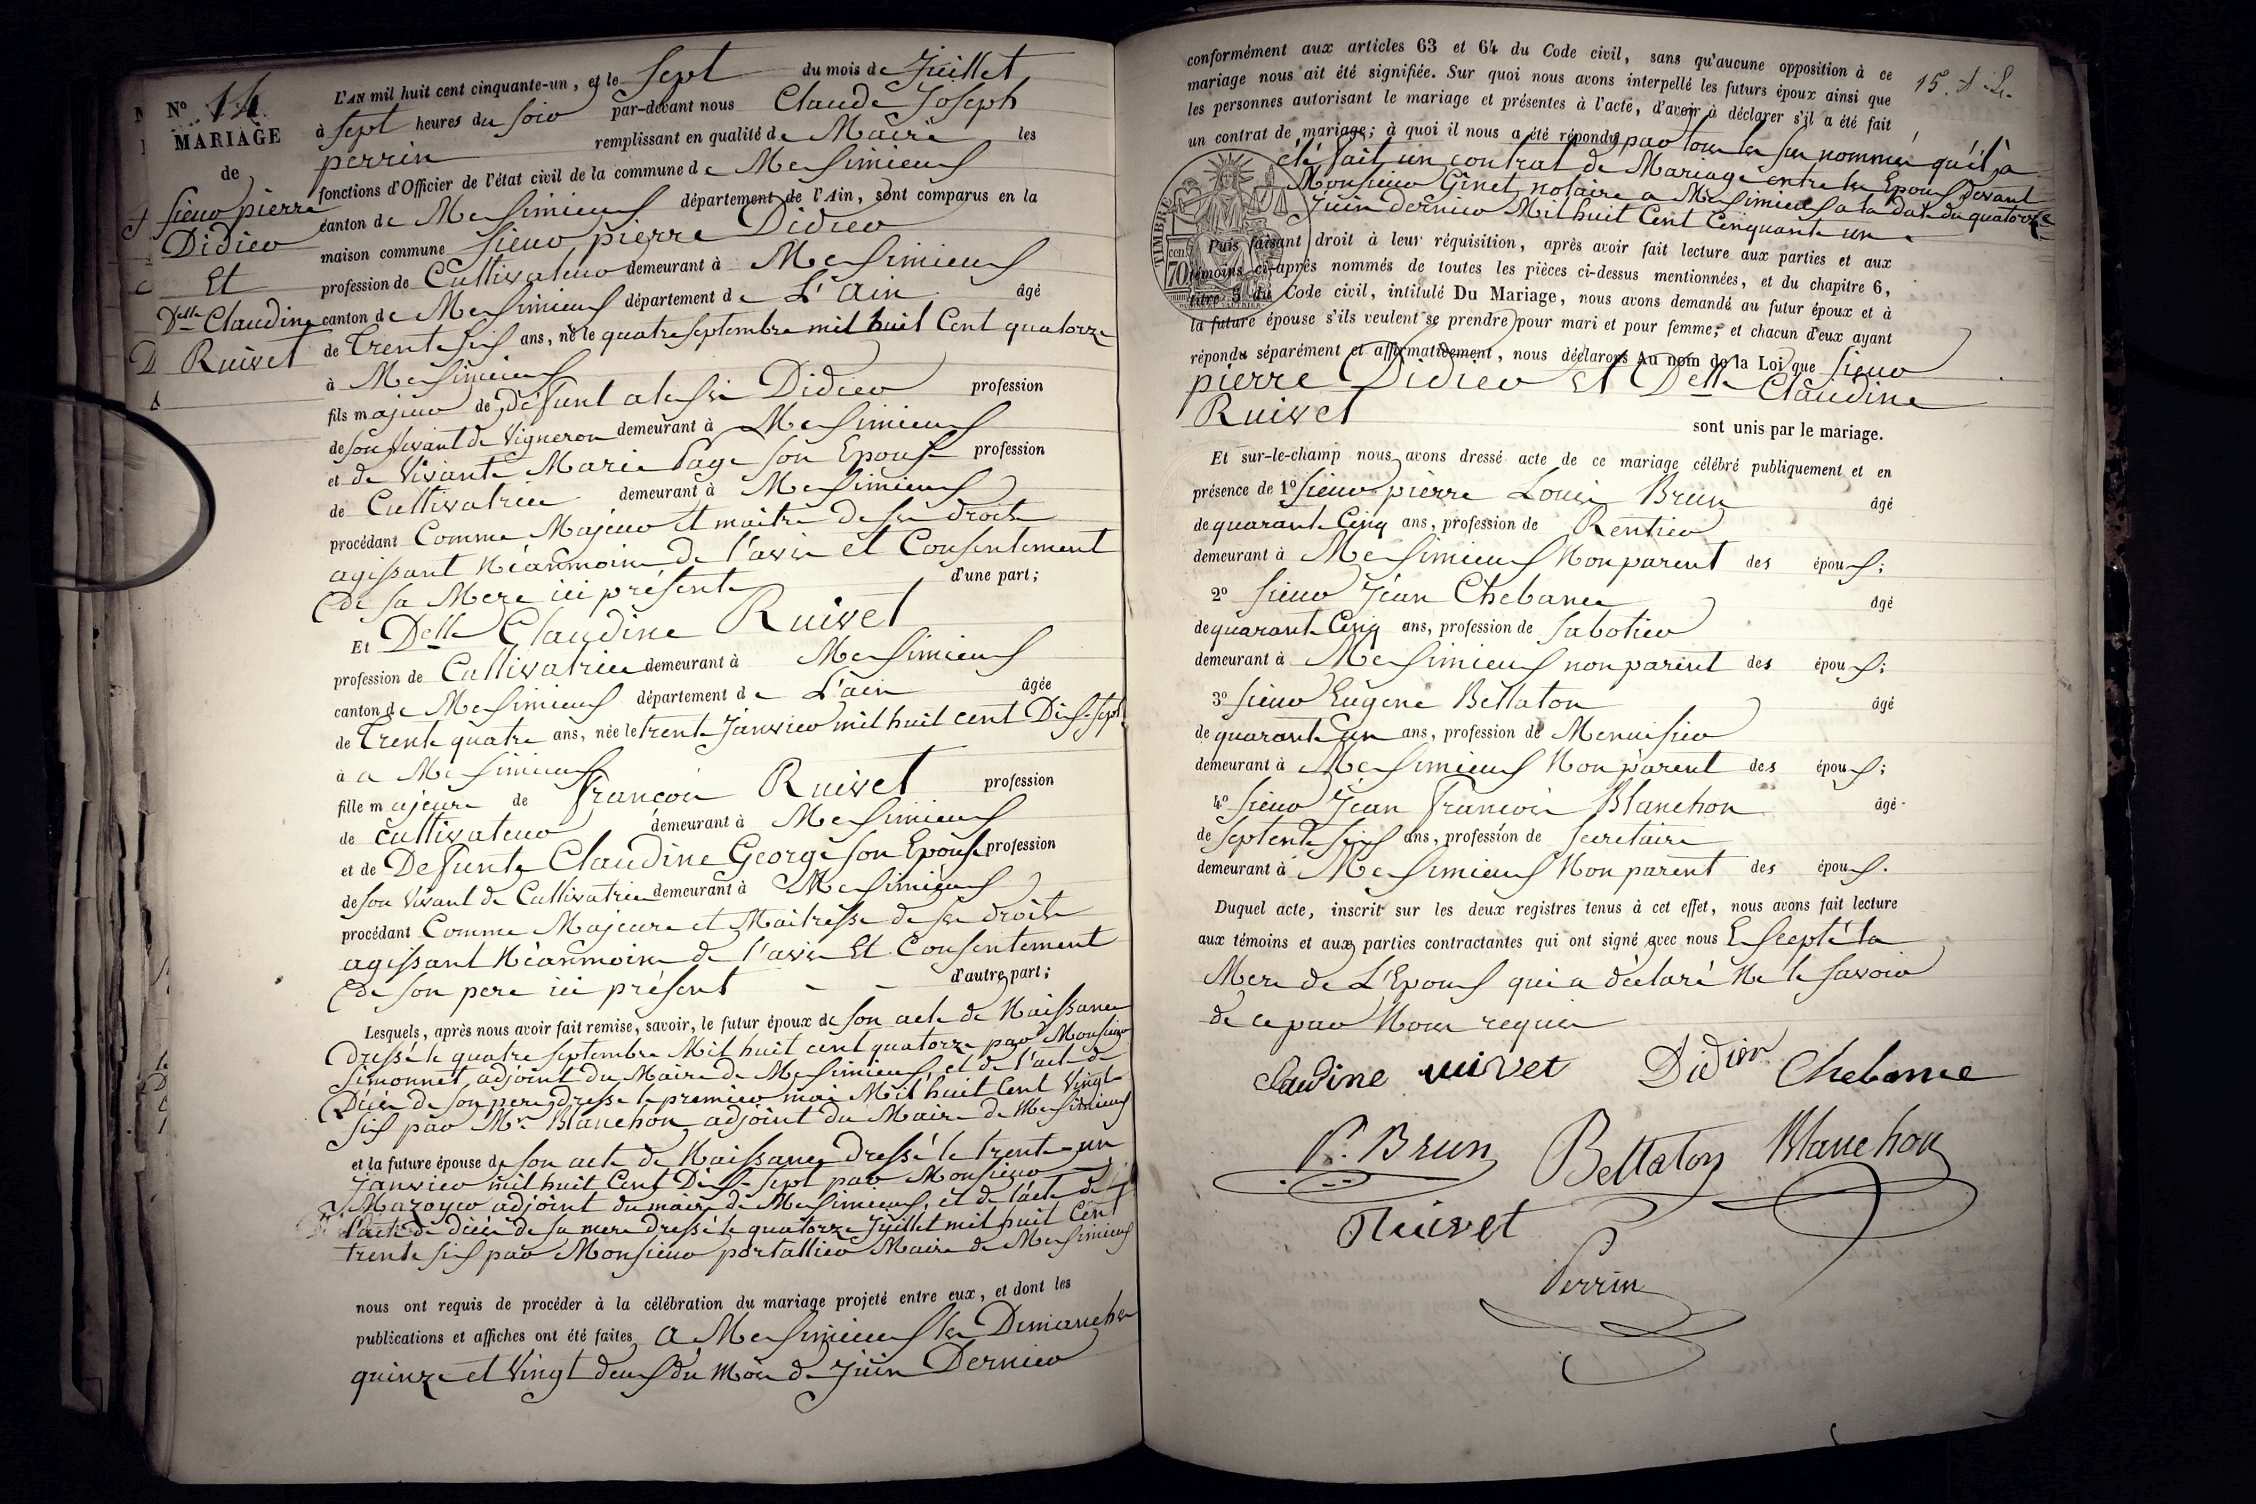 N° 14
MARIAGE
de
Sieur pierre
Didier
Et
Delle Claudine
Ruivet
L'AN mil huit cent cinquante-un, et le Sept du mois de Juillet
à Sept heures du Soir par-devant nous Claude Joseph
perrin remplissant en qualité de Maire les
fonctions d'Officier de l'état civil de la commune de Messimieux
canton de Messimieux département de l'Ain, sont comparus en la
maison commune Sieur pierre Didier
profession de Cultivateur demeurant à Messimieux
canton de Messimieux département de L'Ain âgé
de Trente Six ans, né le quatre Septembre mil huit Cent quatorze
à Messimieux
fils majeur de défunt Didier profession
de son Vivant de Vigneron demeurant à Messimieux
et de Vivante Marie Page son Epouse profession
de Cultivatrice demeurant à Messimieux
procédant Comme Majeur et maitre de ses droits
agissant Néanmoins de l'avis et Consentement
de sa Mere ici présente d'une part;
Et Delle Claudine Ruivet
profession de Cultivatrice demeurant à Messimieux
canton de Messimieux département de L'ain âgée
de Trente quatre ans, née le trente Janvier mil huit cent Dix-Sept
à a Messimieux
fille majeure de François Ruivet profession
de cultivateur demeurant à Messimieux
et de Defunte Claudine George son Epouse profession
de son Vivant de Cultivatrice demeurant à Messimieux
procédant Comme Majeure et Maitresse de ses droits
agissant Néanmoins de l'avis Et Consentement
de son pere ici présent d'autre part;
Lesquels, après nous avoir fait remise, savoir, le futur époux de son acte de Naissance
dressé le quatre Septembre Mil huit cent quatorze par Monsieur
Simonnet adjoint du Maire de Messimieux, et de l'acte de
Décès de son pere dressé le premier mai Mil huit Cent Vingt
six par Mr Blanchon adjoint du Maire de Messimieux
et la future épouse de son acte de Naissance dressé le trente-un
janvier mil huit Cent Dix-Sept par Monsieur
Mazoyer adjoint du maire de Messimieux, et de l'acte de
l'acte de décès de sa mere dressé le quatorze Juillet mil huit Cent
trente six par Monsieur portallier Maire de Messimieux
nous ont requis de procéder à la célébration du mariage projeté entre eux, et dont les
publications et affiches ont été faites a Messimieux les Dimanches
quinze et Vingt deux du Mois de Juin Dernier
conformément aux articles 63 et 64 du Code civil, sans qu'aucune opposition à ce
mariage nous ait été signifiée. Sur quoi nous avons interpellé les futurs époux ainsi que
les personnes autorisant le mariage et présentes à l'acte, d'avoir à déclarer s'il a été fait
un contrat de mariage; à quoi il nous a été répondu par tous les sus nommés qu'il a
été fait un contrat de Mariage entre les Epoux Devant
Monsieur Ginet notaire a Messimieux a la date du quatorze
Juin dernier Mil huit Cent Cinquante un
TIMBRE
70 cen.
Puis faisant droit à leur réquisition, après avoir fait lecture aux parties et aux
témoins ci-après nommés de toutes les pièces ci-dessus mentionnées, et du chapitre 6,
titre 5 du Code civil, intitulé Du Mariage, nous avons demandé au futur époux et à
la future épouse s'ils veulent se prendre pour mari et pour femme; et chacun d'eux ayant
répondu séparément et affirmativement, nous déclarons Au nom de la Loi que Sieur
pierre Didier et Delle Claudine
Ruivet
sont unis par le mariage.
Et sur-le-champ nous avons dressé acte de ce mariage célébré publiquement et en
présence de 1° Sieur pierre Louis Brun âgé
de quarante Cinq ans, profession de Rentier
demeurant à Messimieux Non parent des époux;
2° Sieur Jean Chebance âgé
de quarante Cinq ans, profession de Sabotier
demeurant à Messimieux non parent des époux;
3° Sieur Eugene Bellaton âgé
de quarante un ans, profession de Menuisier
demeurant à Messimieux Non parent des époux;
4° Sieur Jean François Blanchon âgé
de Septente Six ans, profession de Secretaire
demeurant à Messimieux Non parent des époux.
Duquel acte, inscrit sur les deux registres tenus à cet effet, nous avons fait lecture
aux témoins et aux parties contractantes qui ont signé avec nous Excepté la
Mere de L'Epoux qui a déclaré Ne le Savoir
de ce par Nous requis
Claudine ruivet Didier Chebance
P. Brun Bellaton Blanchon
Ruivet
Perrin